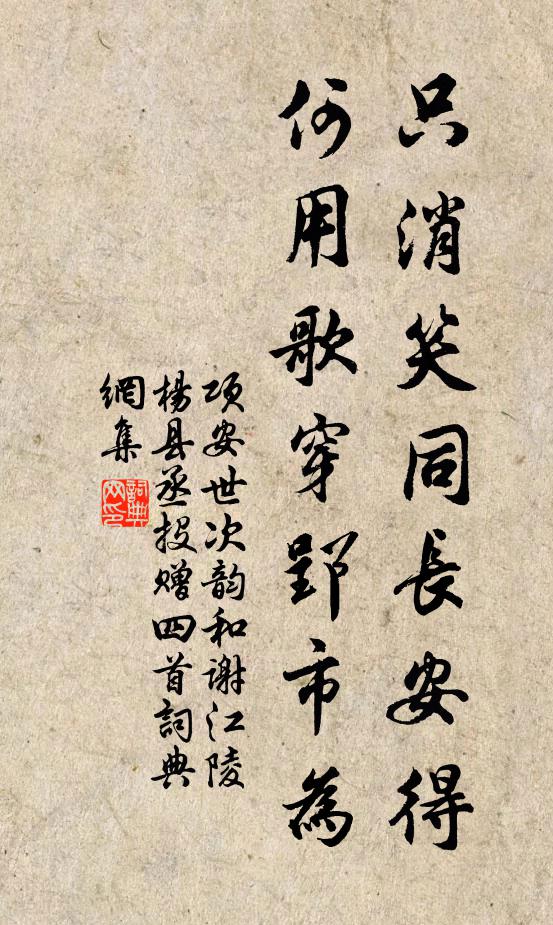 只消笑同長安得
何用歌穿郢市為
项安世次韵和谢江陵
楊县丞投赠四首詞典
網集
詞典网印